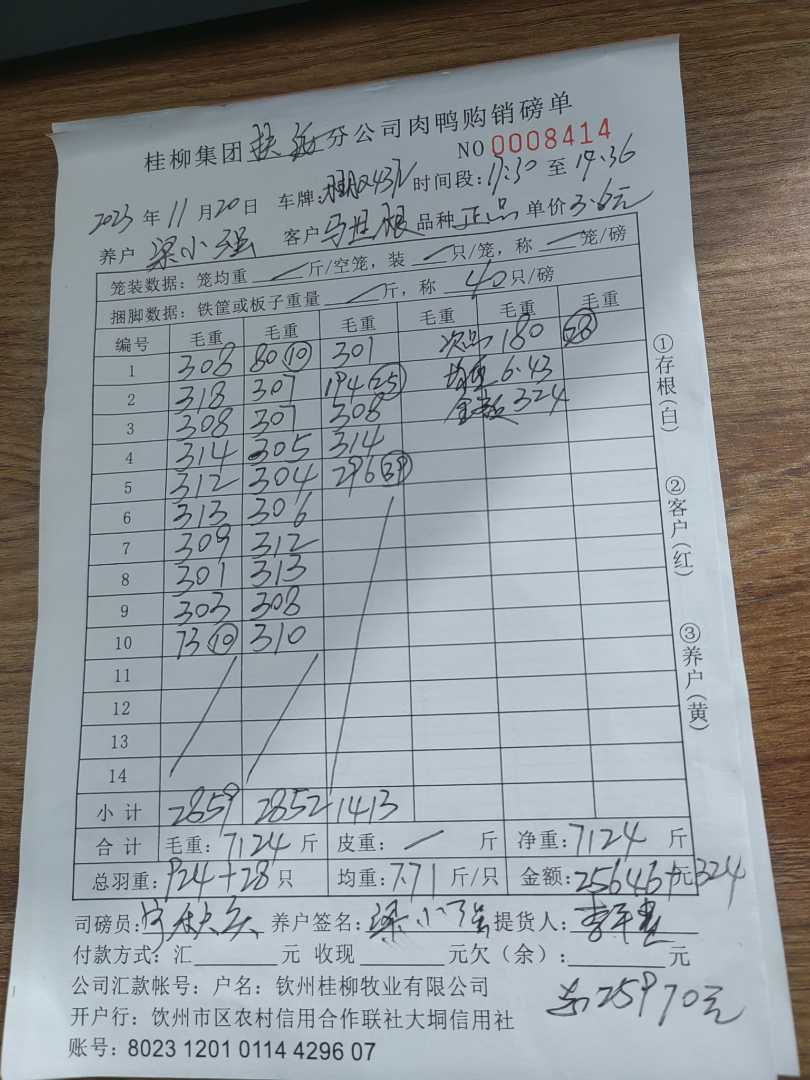 桂柳集团 分公司肉鸭购销磅单
NO 0008414
2023 年 11 月 20 日 车牌: 时间段: 17:30 至 17:36
养户 梁小强 客户 马世根 品种 正品 单价 3.6元
笼装数据: 笼均重 / 斤/空笼, 装 / 只/笼, 称 / 笼/磅
捆脚数据: 铁筐或板子重量 / 斤, 称 40 只/磅
编号 毛重 毛重 毛重 毛重 毛重 毛重
1 308 80 ⑩ 301 次品 180 ㉘
2 318 307 194 ㉕ 均重 6.43
3 308 307 308 金额 324
4 314 305 314
5 312 304 296 ㊴
6 313 306
7 309 312
8 301 313
9 303 308
10 73 ⑩ 310
11
12
13
14
小计 2859 2852 1413
合计 毛重: 7124 斤 皮重: / 斤 净重: 7124 斤
总羽重: 924+28 只 均重: 7.71 斤/只 金额: 25646+元324
司磅员: 养户签名: 梁小强 提货人:
付款方式: 汇 元 收现 元欠(余): 元
公司汇款帐号: 户名: 钦州桂柳牧业有限公司
25970元
开户行: 钦州市区农村信用合作联社大垌信用社
账号: 8023 1201 0114 4296 07
①存根(白)
②客户(红)
③养户(黄)